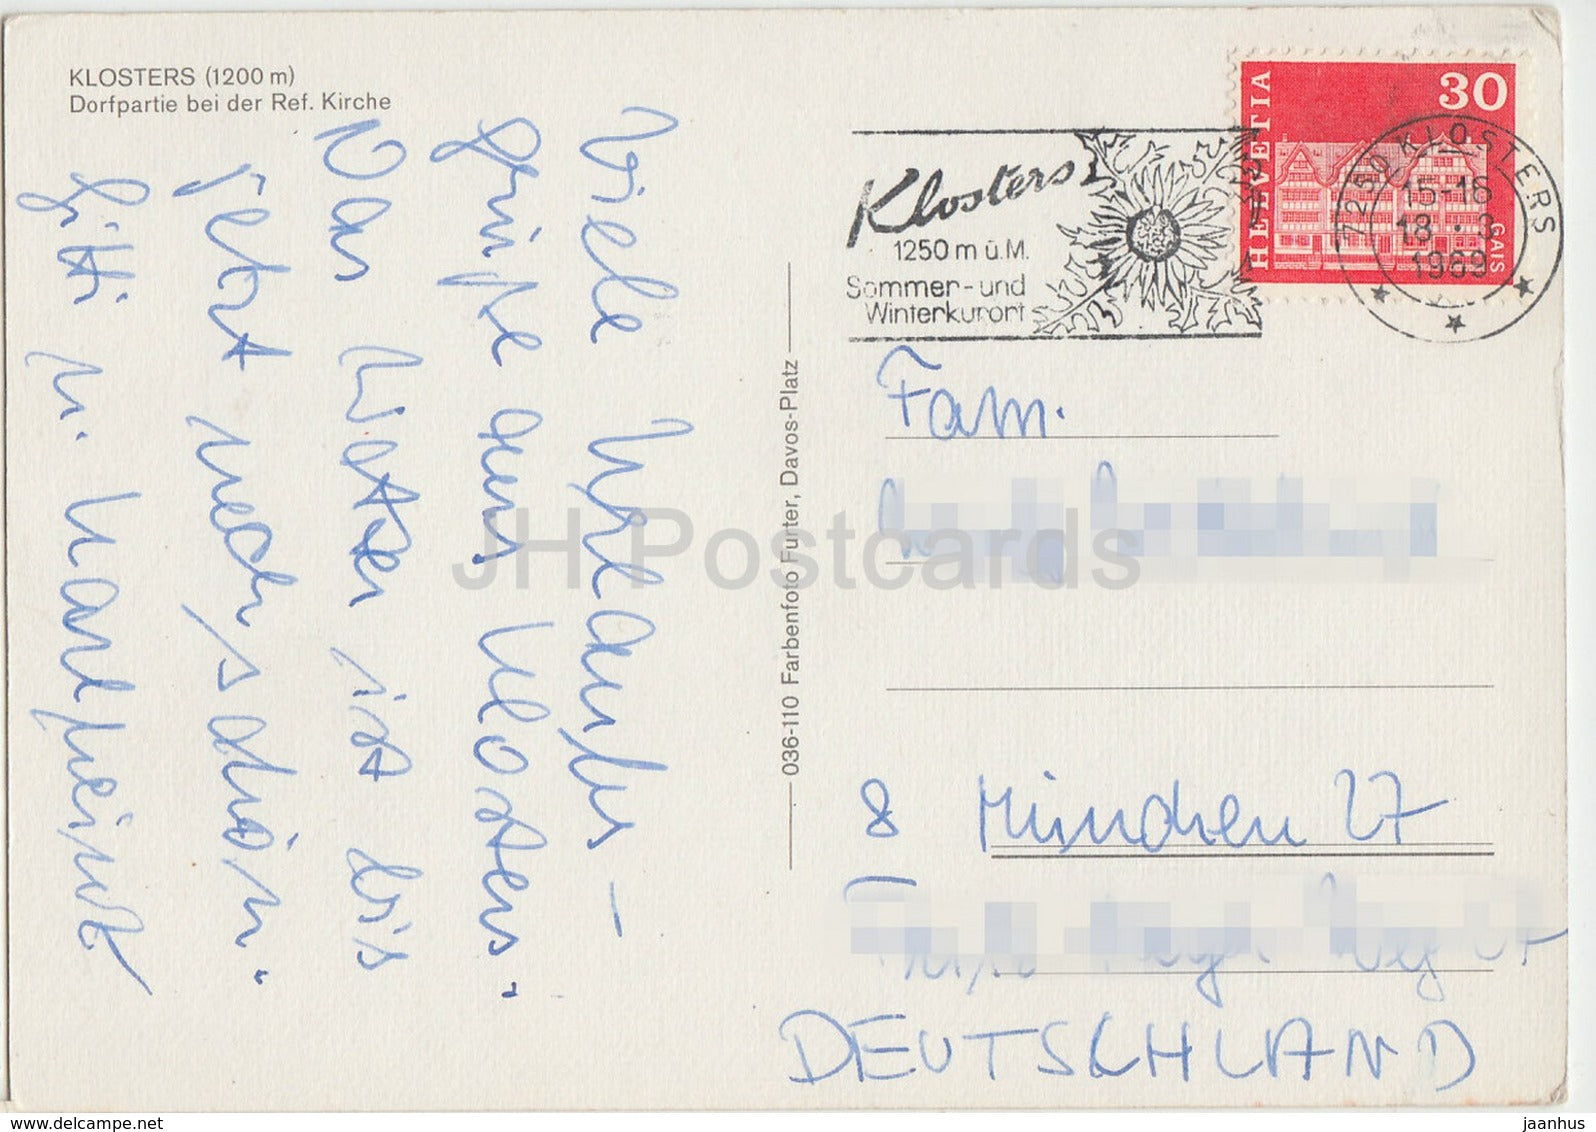 KLOSTERS (1200 m)
Dorfpartie bei der Ref. Kirche
Viele Urlaubs-
grüße aus Klosters.
Das Wetter ist bis
jetzt nech schön.
Gitti u.
036-110 Farbenfoto Furter, Davos-Platz
Klosters
1250 m ü.M.
Sommer- und
Winterkurort
HELVETIA
30
GAIS
7250 KLOSTERS
15-16
18.3
1969
Fam.
8 München 27
DEUTSCHLAND
JH Postcards
www.delcampe.net
jaanhus